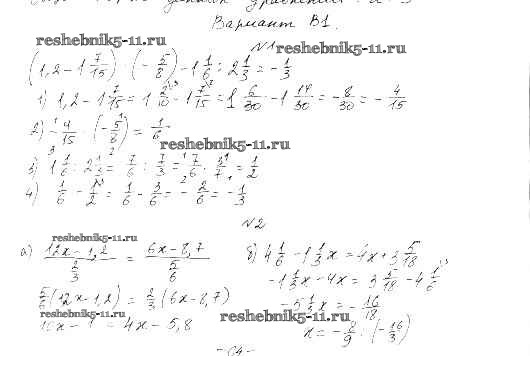 Вариант В1.
reshebnik5-11.ru
№1
(1,2 - 1 7/15) · (-5/8) - 1 1/6 : 2 1/3 = -1/3
1) 1,2 - 1 7/15 = 1 2/10 - 1 7/15 = 1 6/30 - 1 14/30 = -8/30 = -4/15
2) -4/15 · (-5/8) = 1/6
reshebnik5-11.ru
3) 1 1/6 : 2 1/3 = 7/6 : 7/3 = 7/6 · 3/7 = 1/2
4) 1/6 - 1/2 = 1/6 - 3/6 = -2/6 = -1/3
№2
reshebnik5-11.ru
а) (12x - 1,2)/(2/3) = (6x - 8,7)/(5/6)
5/6(12x - 1,2) = 2/3(6x - 8,7)
reshebnik5-11.ru
10x - 1 = 4x - 5,8
б) 4 1/6 - 1 1/3x = 4x + 3 5/18
-1 1/3x - 4x = 3 5/18 - 4 1/6
-5 1/3x = -16/18
reshebnik5-11.ru
x = -8/9 : (-16/3)